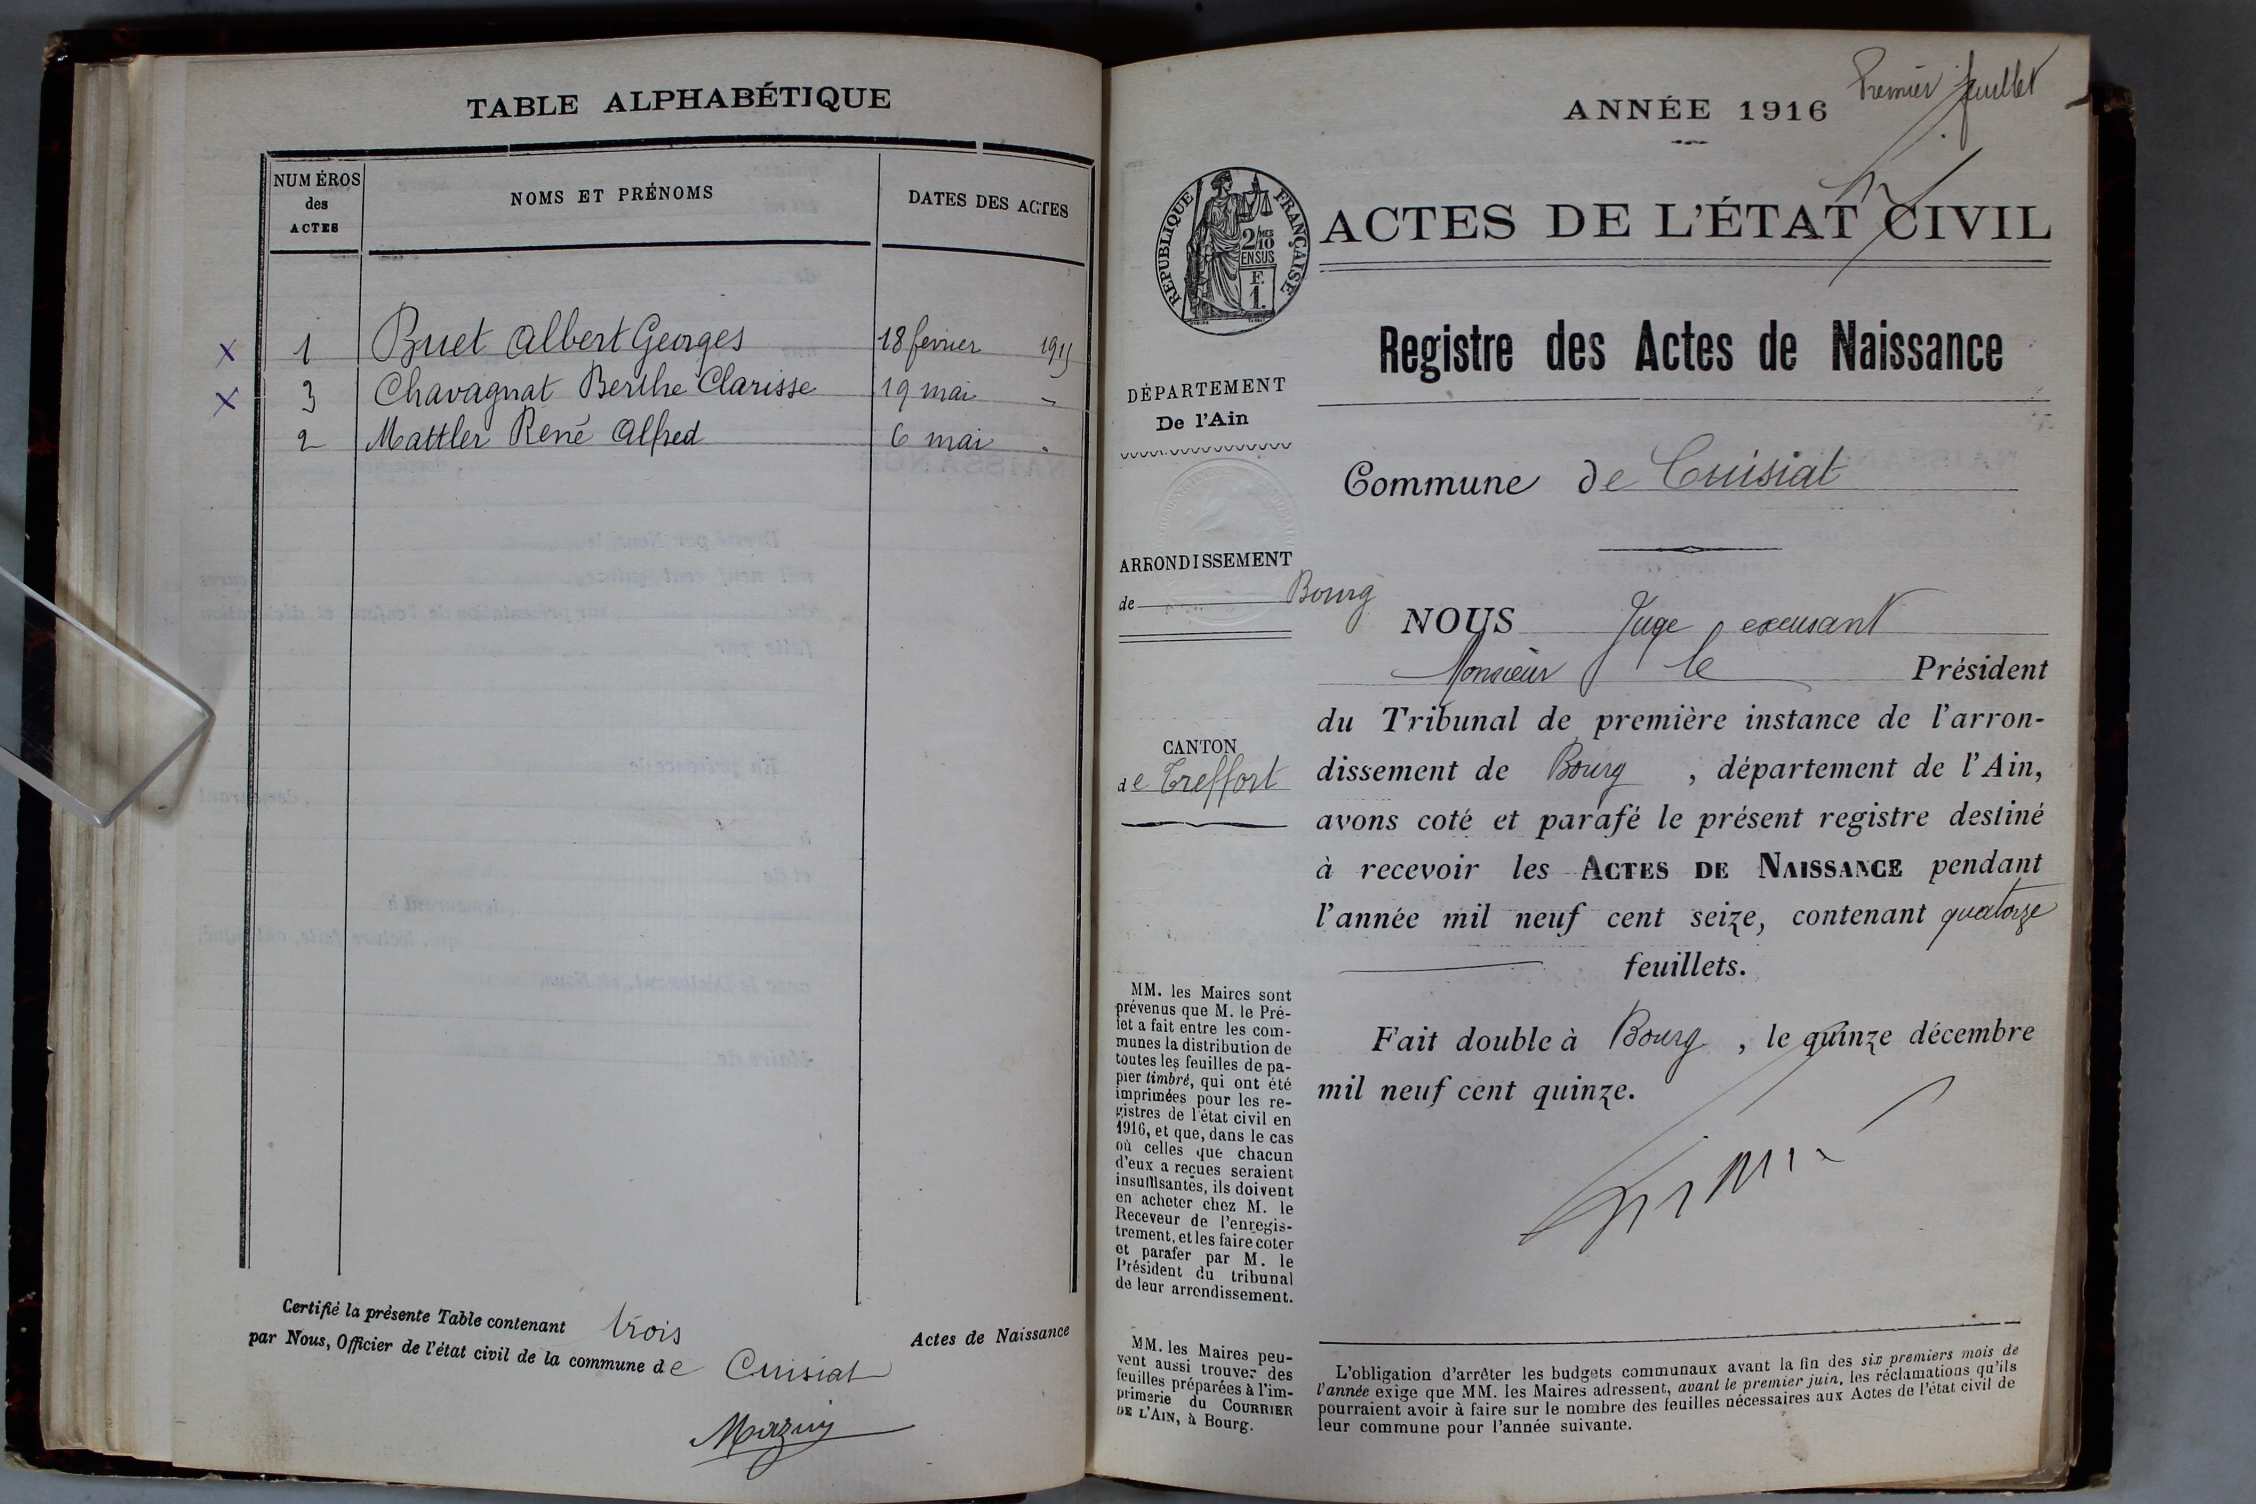 TABLE ALPHABÉTIQUE
NUMÉROS
des
ACTES
NOMS ET PRÉNOMS
DATES DES ACTES
1 Buet Albert Georges 18 février 1915
3 Chavagnat Berthe Clarisse 19 mai -
2 Mattler René Alfred 6 mai .
Certifié la présente Table contenant trois Actes de Naissance
par Nous, Officier de l'état civil de la commune de Cuisiat
Premier feuillet
ANNÉE 1916
RÉPUBLIQUE FRANÇAISE
2/10
MES
EN SUS
F.
1.
ACTES DE L'ÉTAT CIVIL
Registre des Actes de Naissance
DÉPARTEMENT
De l'Ain
Commune de Cuisiat
ARRONDISSEMENT
de Bourg
CANTON
de Treffort
NOUS Juge excusant
Monsieur le Président
du Tribunal de première instance de l'arron-
dissement de Bourg, département de l'Ain,
avons coté et parafé le présent registre destiné
à recevoir les ACTES DE NAISSANCE pendant
l'année mil neuf cent seize, contenant quatorze
feuillets.
Fait double à Bourg, le quinze décembre
mil neuf cent quinze.
MM. les Maires sont
prévenus que M. le Pré-
fet a fait entre les com-
munes la distribution de
toutes les feuilles de pa-
pier timbré, qui ont été
imprimées pour les re-
gistres de l'état civil en
1916, et que, dans le cas
où celles que chacun
d'eux a reçues seraient
insuffisantes, ils doivent
en acheter chez M. le
Receveur de l'enregis-
trement, et les faire coter
et parafer par M. le
Président du tribunal
de leur arrondissement.
MM. les Maires peu-
vent aussi trouver des
feuilles préparées à l'im-
primerie du COURRIER
DE L'AIN, à Bourg.
L'obligation d'arrêter les budgets communaux avant la fin des six premiers mois de
l'année exige que MM. les Maires adressent, avant le premier juin, les réclamations qu'ils
pourraient avoir à faire sur le nombre des feuilles nécessaires aux Actes de l'état civil de
leur commune pour l'année suivante.